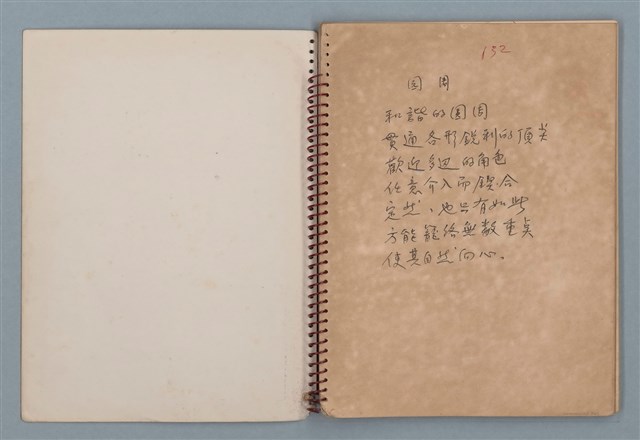 132
圆周
和諧的圆周
貫通各形銳利的頂尖
歡迎多边的角色
任意介入而鍥合
定然、也只有如此
方能籠络無数重矣
使其自然向心。